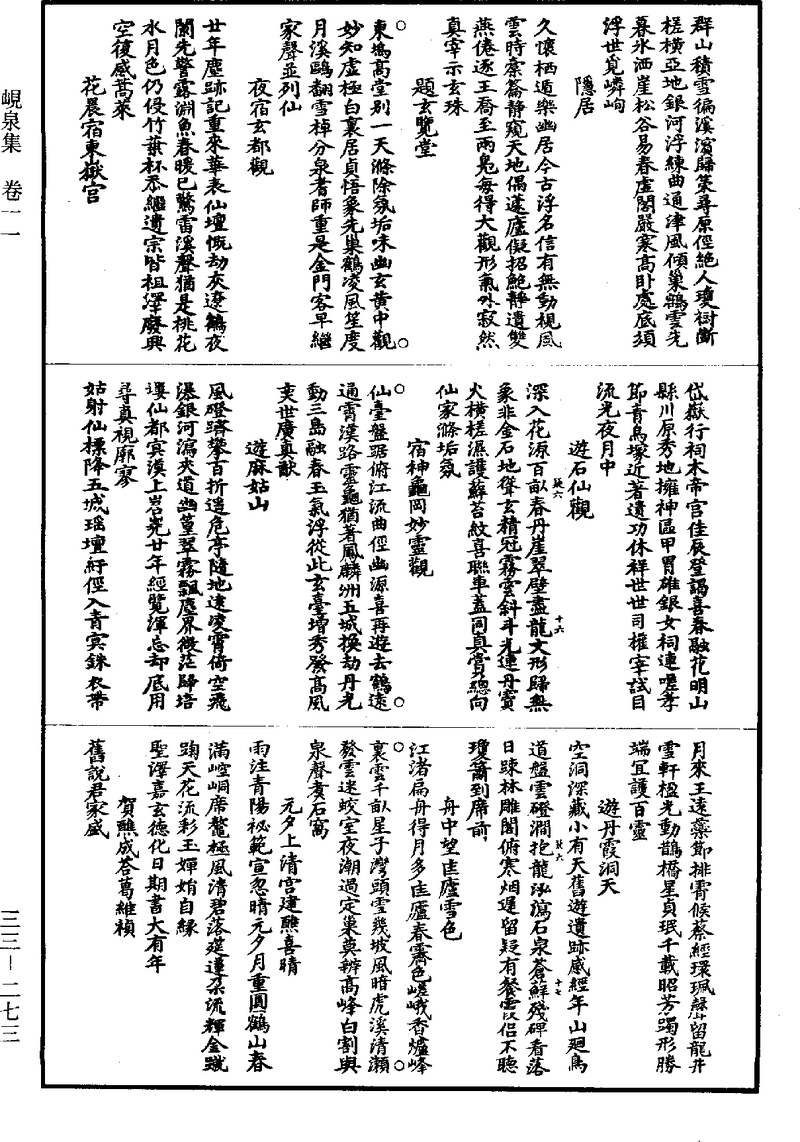 群山積雪徧溪濵歸策尋原徑絕人瓊樹斷
槎橫亞地銀河浮練曲通津風傾巢鶴雲先
暮氷洒崖松谷易春虛閣嚴豪高卧處底須
浮世覓嶙峋
隱居
久懷栖遁樂幽居今古浮名信有無動視風
雲時寨簥静窺天地偶蘧廬儗招鮑静遺雙
燕倦逐王喬至兩鳧每得大觀形氣外寂然
真宰示玄珠
題玄覽堂
東塢高堂别一天滌除氛垢味幽玄黄中觀
妙知虛極白裏居貞悟象先巢鶴凌風笙度
月溪鷗翻雪棹分泉耆師重是金門客早繼
家聲並列仙
夜宿玄都觀
廿年塵跡記重來華表仙壇慨劫灰遼鶴夜
闌先警露淵魚春暖已驚雷溪聲猶是桃花
水月色仍侵竹葉杯忝繼遺宗皆祖澤廢興
空復感蒿萊
花晨宿東嶽宫
岱嶽行祠木帝宫佳辰登謁喜春融花明山
縣川原秀地擁神區甲胃雄銀女祠連嗟孝
節青烏塚近著遺功休祥世世司權宰試目
流光夜月中
遊石仙觀
深入花源百畝春丹崖翠壁盡龍文形歸無
象非金石地聳玄精冠霧雲斜斗光連丹竇
火橫槎濕護蘚苔紋喜聯車蓋同真賞總向
仙家滌垢氛
宿神龜岡妙靈觀
仙臺盤踞俯江流曲徑幽源喜再遊去鶴遠
通霄漢路靈龜猶著鳳麟洲五城換劫丹光
動三島融春玉氣浮從此玄臺增秀發高風
奕世廣真猷
遊麻姑山
風磴躋攀百折遥危亭隨地逺凌霄倚空飛
瀑銀河瀉夾道幽篁翠霧飄塵界微茫歸培
塿仙都宾漠上岧嶤廿年經覽渾忘却底用
尋真視廓寥
姑射仙標降五城瑶壇紆徑入青冥銖衣帶
月來王遠藥節排霄候蔡經環珮聲留龍井
雪軒楹光動鵲橋星貞珉千載昭芳躅形勝
端宜護百靈
遊丹霞洞天
空洞深藏小有天舊遊遺跡感經年山廻鳥
道盤雲磴澗抱龍泓瀉石泉蒼蘚殘碑看落
日踈林雕閣俯寒烟遲留疑有餐霞侣不聴
瓊簫到席前
舟中望匡廬雪色
江渚扁舟得月多匡廬春霽色嵯峨香爐峰
裏雲千畝星子灣頭雪幾坡風暗虎溪清瀬
發雲迷蛟室夜潮過定巢莫辨高峰白割與
泉聲度石窩
元夕上清宫建醮喜晴
雨注青陽祕範宣忽晴元夕月重圓鶴山春
滿崆峒席鰲極風清碧落筵蓮朵流輝金蹴
踘天花流彩玉嬋娟自緣
聖澤嘉玄德化日期書大有年
賀醮成荅葛維楨
舊說君家盛
峴泉集　卷一一
三三－二七三